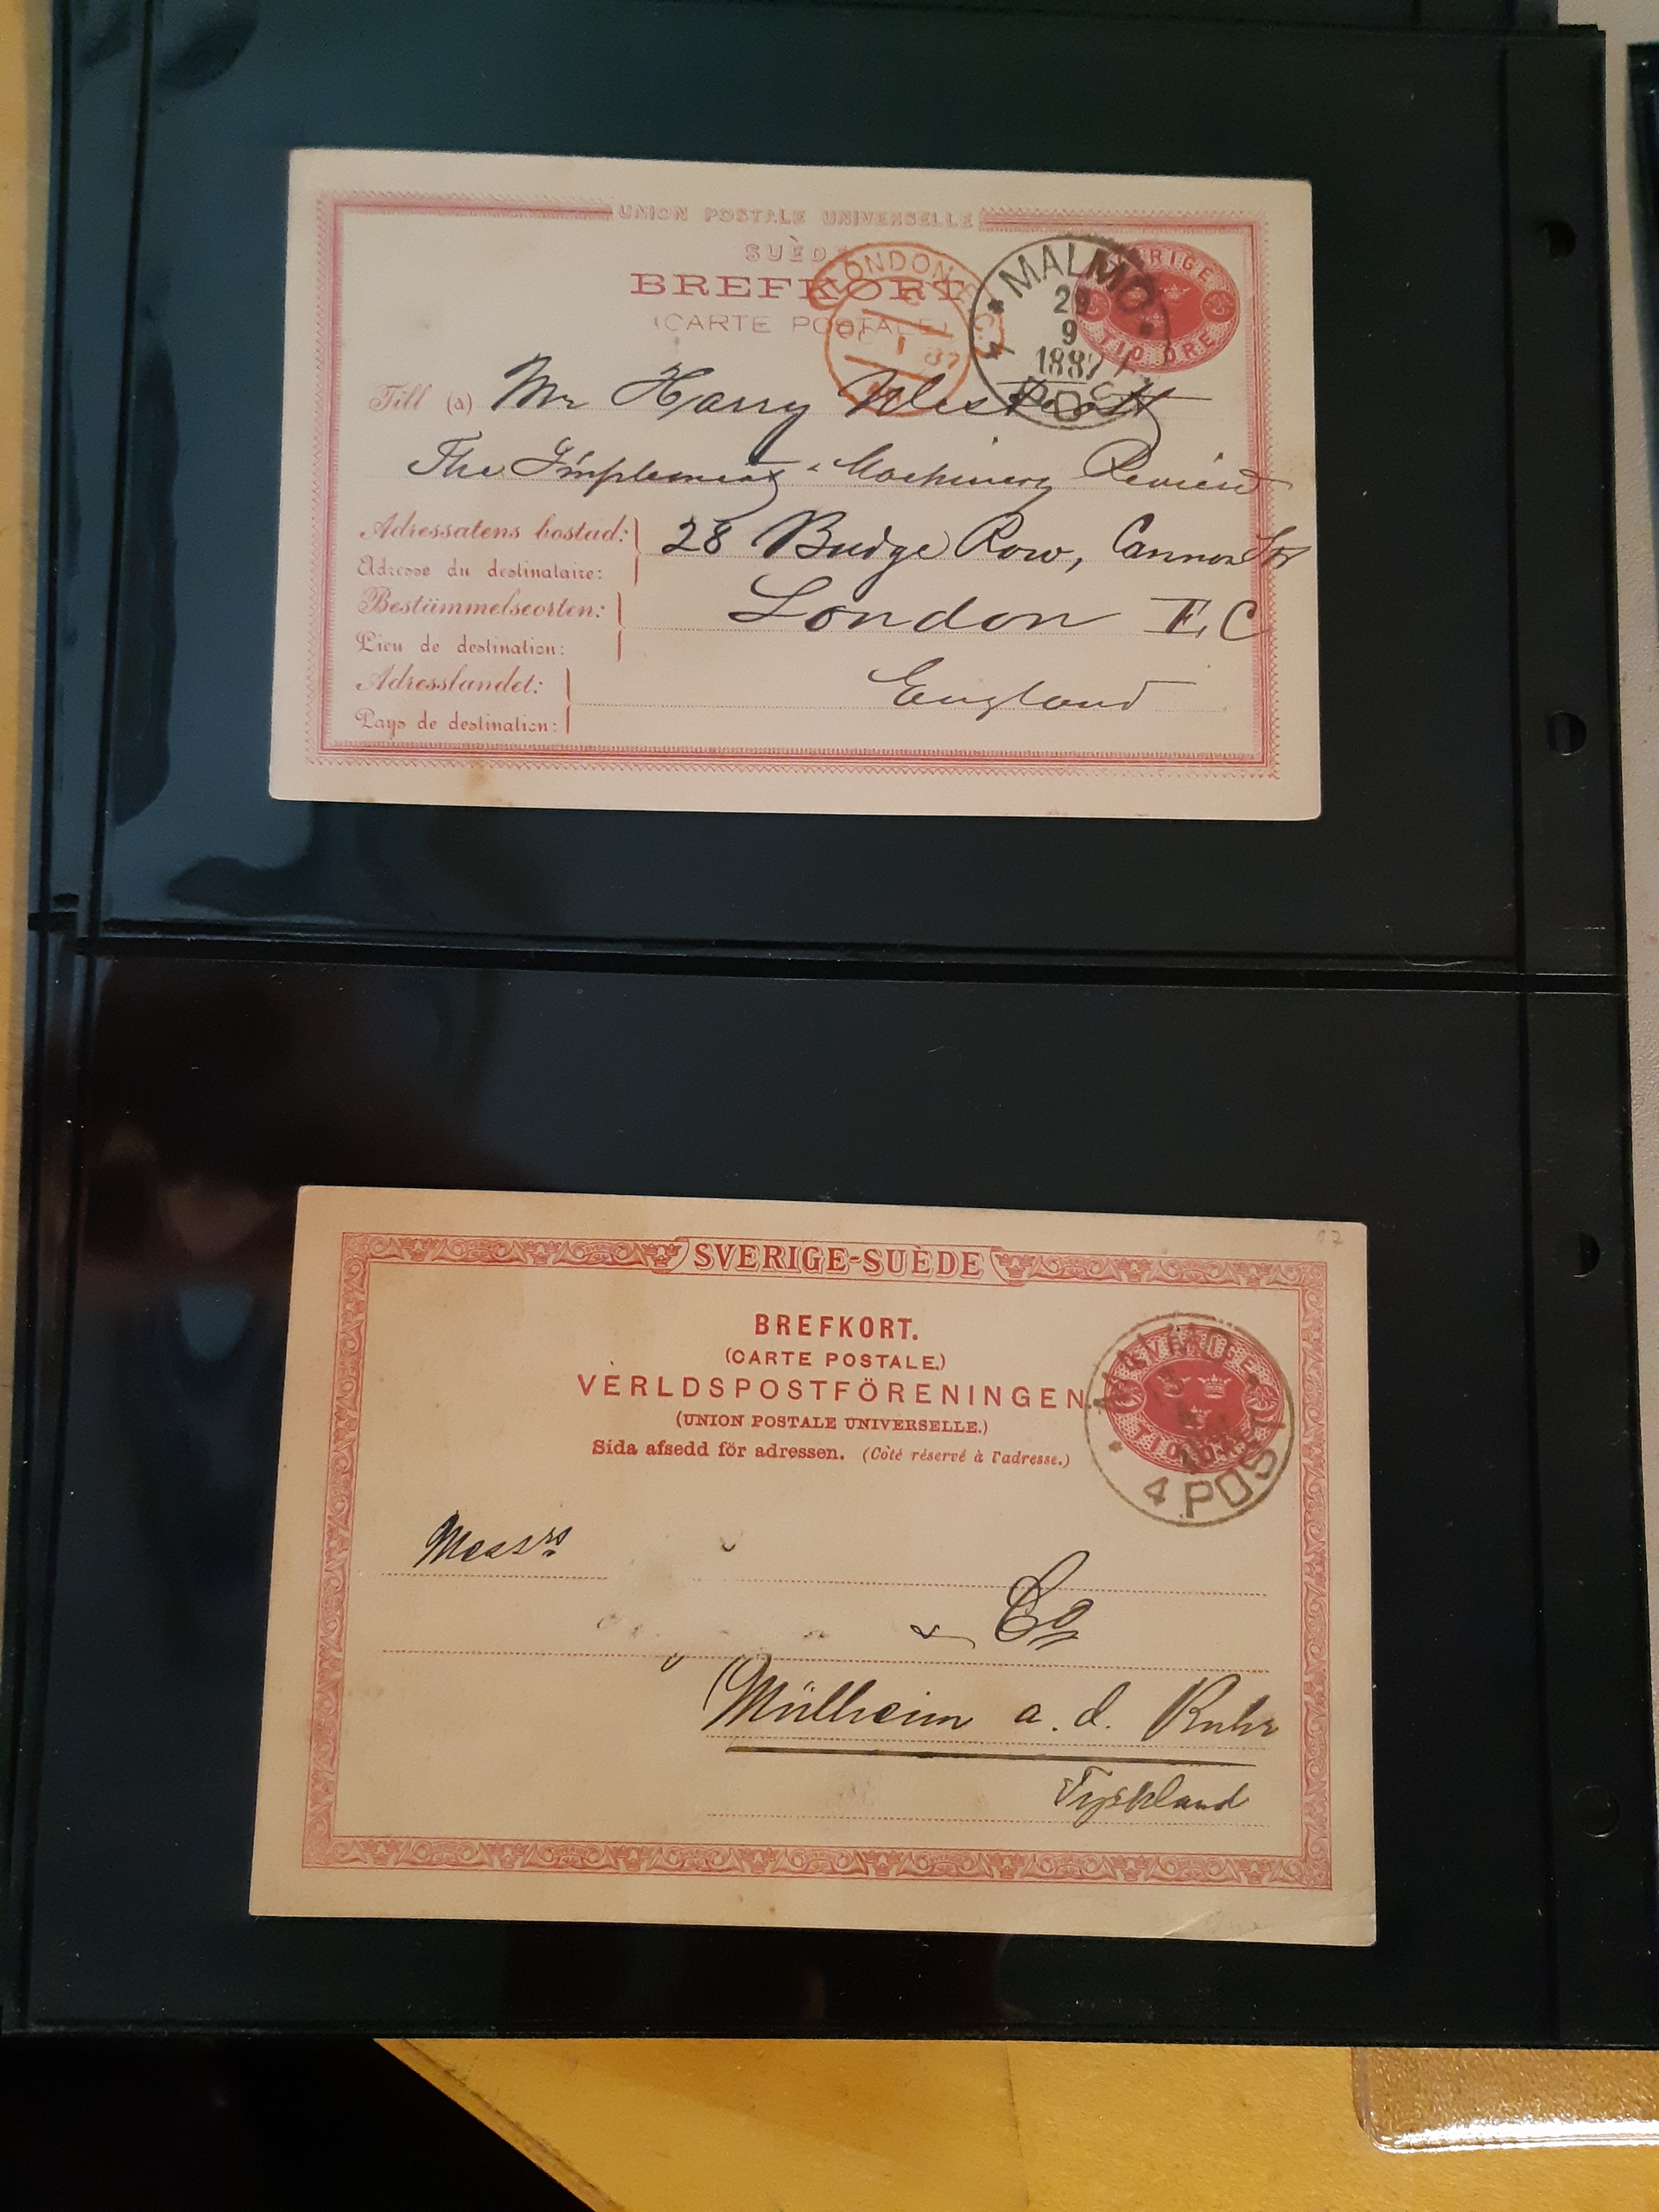 UNION POSTALE UNIVERSELLE
SUÈDE
BREFKORT
(CARTE POSTALE)
LONDON E.C.
OC 1 87
MALMÖ
29
9
1887
POST
SVERIGE
TIO ÖRE
Till (à) Mr Harry
The Implement & Machinery Review
Adressatens bostad: 28 Budge Row, Cannon St
Adresse du destinataire:
Bestämmelseorten: London E.C
Lieu de destination:
Adresslandet: England
Pays de destination:
87
SVERIGE-SUÈDE
BREFKORT.
(CARTE POSTALE.)
VERLDSPOSTFÖRENINGEN
(UNION POSTALE UNIVERSELLE.)
Sida afsedd för adressen. (Côté réservé à l'adresse.)
SVERIGE
TIO ÖRE
MALMÖ
4 POST
Messrs
& Co
Mülheim a. d. Ruhr
Tyskland